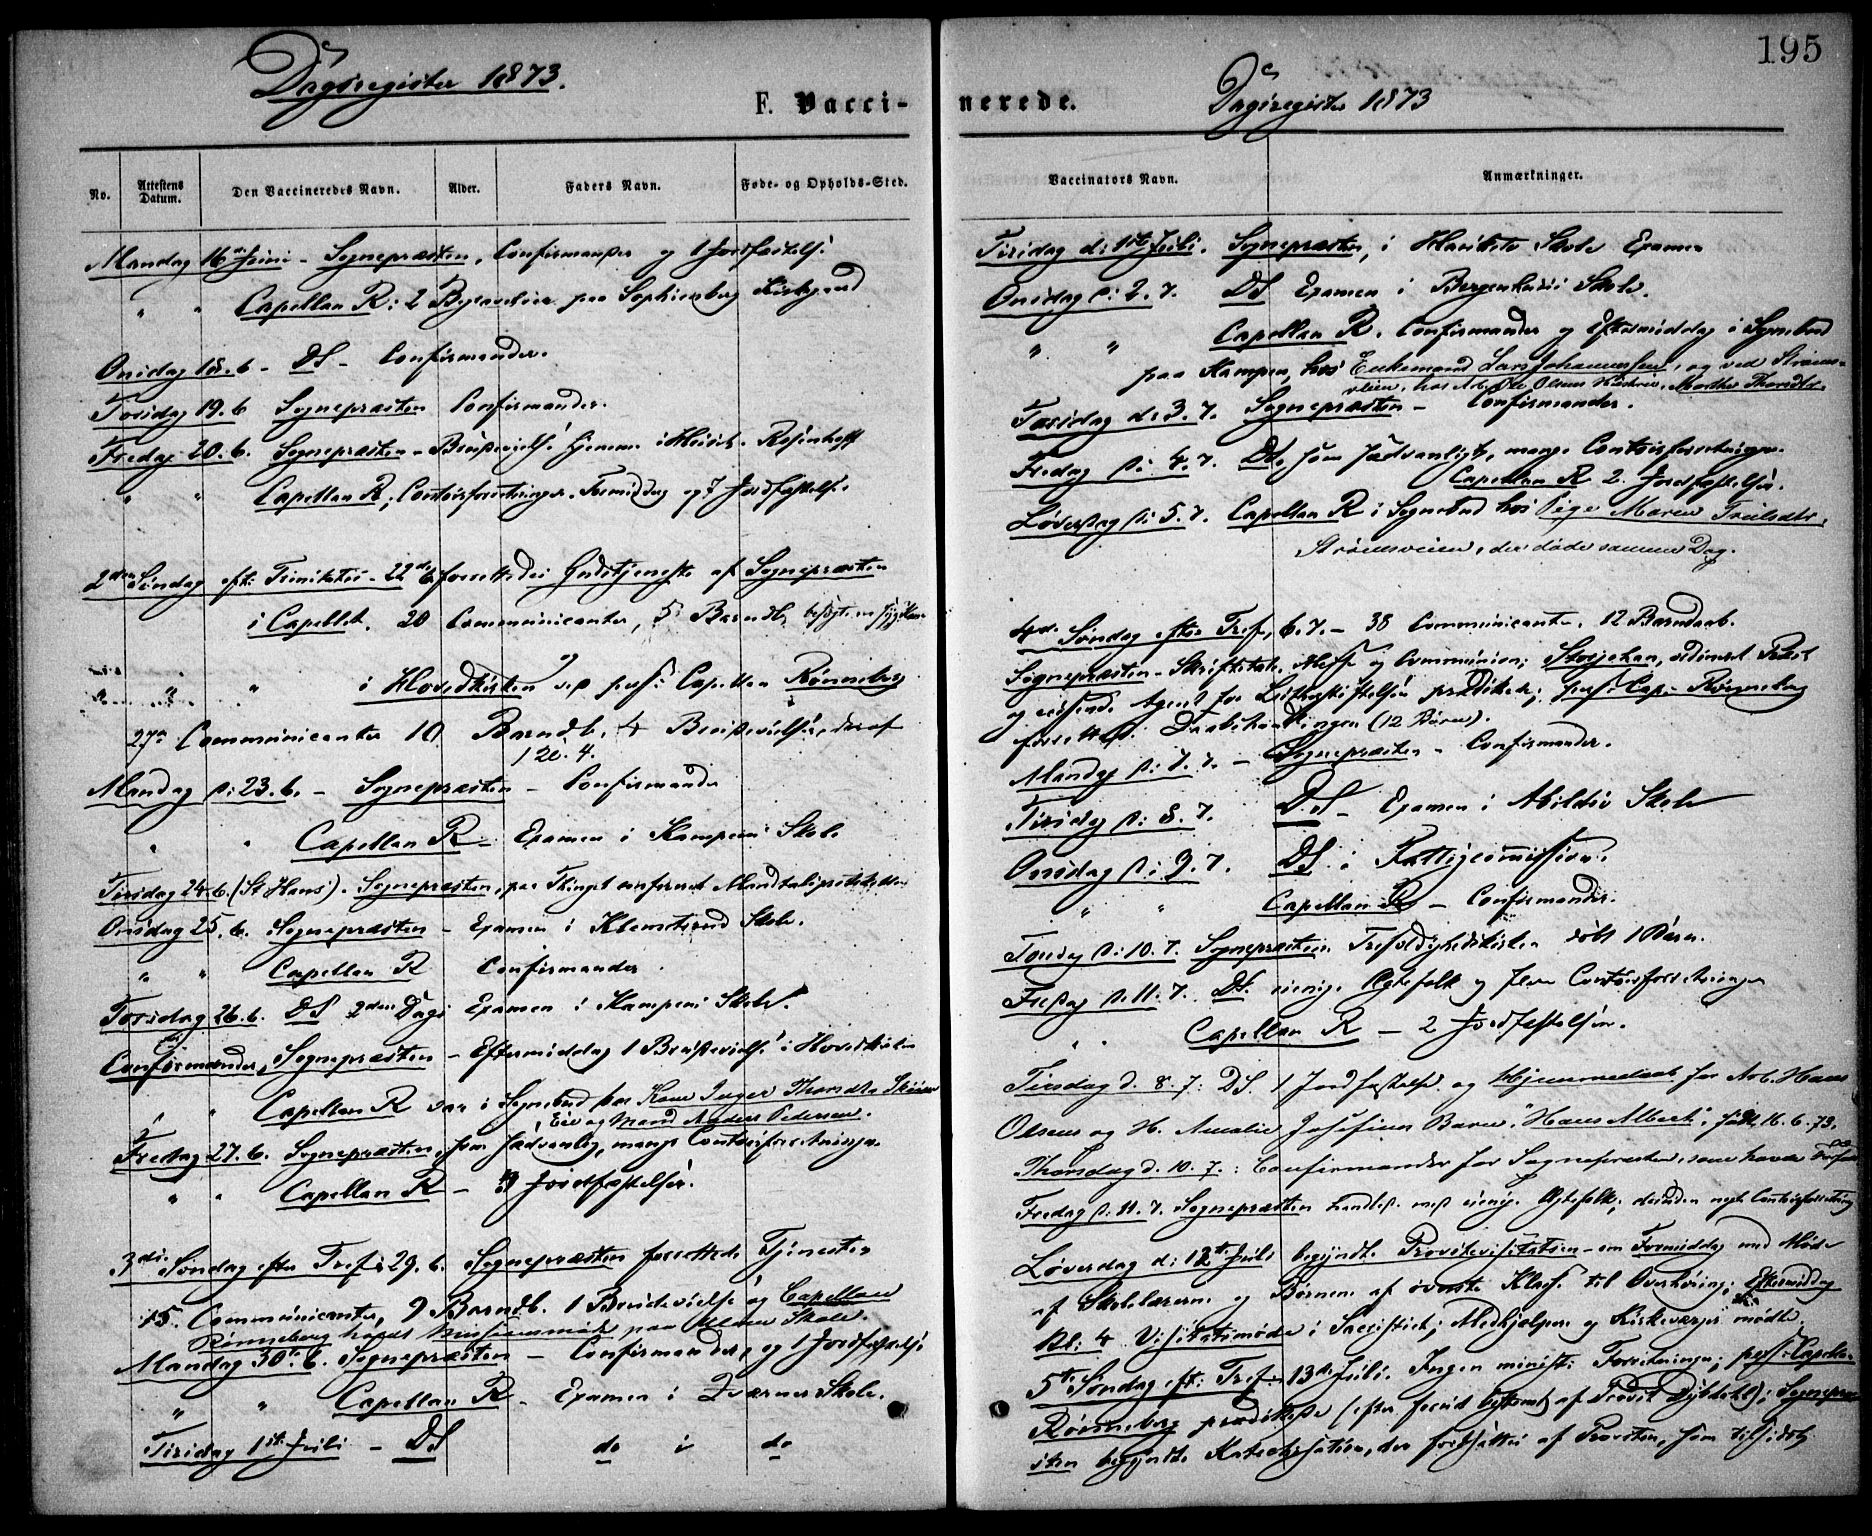 195
Dagsregister 1873.
F. Vacci-
No.
Attestens Datum.
Den Vaccineredes Navn.
Alder.
Faders Navn.
Føde- og Opholds-Sted.
Mandag 16de Juni - Sognepræsten, Confirmander og 1 Jordfæstelse
" " Capellan R: 2 Begravelser paa Sophienberg Kirkegaard
Onsdag 18.6 - DS - Confirmander.
Torsdag 19.6 Sognepræsten Confirmander.
Fredag 20.6. Sognepræsten - Brudevielse hjemme i Huset Rosenhoff
" " Capellan R, Contoirforretninger Formiddag og 7 Jordfæstelse
2den Søndag eft: Trinitatis - 22de 6 forrettedes Gudstjeneste af Sognepræsten
i Capellet. 20 Communicanter, 5 Barnd.
" " " i Hovedkirken ved pers: Capellan Rønneberg
27 Communicanter 10 Barndb. 4 Brudevielser, deraf
Mandag d: 23.6. - Sognepræsten - Confirmander
" " Capellan R - Examen i Kampens Skole
Tirsdag 24.6. (St Hans). Sognepræsten, paa Thinget confereret Mandtalsprotokollen
Onsdag 25.6. Sognepræsten - Examen i Klemetsrud Skole.
" " Capellan R Confirmander.
Torsdag 26.6. DS 2den Dags Examen i Kampens Skole.
Confirmander, Sognepræsten - Eftermiddag 1 Brudevielse i Hovedkirken
" Capellan R var i Sognebud hos Kone Inger Thorsdtr.
og Mand Anders Pedersen.
Fredag 27.6. Sognepræsten, som sædvanlig, mange Contoirforretninger
" " Capellan R - Jordfæstelser.
3die Søndag efter Tref: 29.6. Sognepræsten forrettede Tjenesten
15 Communicanter, 9 Barndb. 1 Brudevielse og Capellan
Rønneberg holdt Missionsmøde paa Skole.
Mandag 30te 6. Sognepræsten - Confirmander, og 1 Jordfæstelse
" " Capellan R - Examen i Qværner Skole.
Tirsdag 1ste Juli - DS do i do
nerede.
Dagsregister 1873
Vaccinators Navn.
Anmærkninger.
Tirsdag d: 1ste Juli. Sognepræsten, i Skole Examen
Onsdag d: 2.7. DS Examen i Bergenhuus Skole.
" " Capellan R. Confirmander og Eftermiddag i Sognebud
paa Kampen, hos Enkemand Lars Johannessen, og ved Strøms-
veien, hos Arb. Ole Olsens Hustru, Marthe Thorsdtr.
Torsdag d: 3.7. Sognepræsten - Confirmander.
Fredag d: 4.7. DS, som sædvanligt, mange Contoirforretninger.
Capellan R 2 Jordfæstelser.
Løverdag d: 5.7. Capellan R i Sognebud hos Pige Maren
Strømsveien, der døde samme Dag.
4de Søndag efter Tref, 6.7. - 38 Communicanter. 12 Barndaab.
Sognepræsten - Skriftetale, Messe og Communion; Storjohan, ordineret Præst
og reisende Agent for prædikede; pers: Cap. Rønneberg
forrettede Daabshandlingen (12 Børn).
Mandag d: 7.7. - Sognepræsten - Confirmander.
Tirsdag d: 8.7. DS - Examen i Abildsø Skole
Onsdag d: 9.7. DS i Fattigcommission.
" " Capellan R - Confirmander.
Torsdag d: 10.7. Sognepræsten. Trefoldighedskirken døbt 1 Barn.
Fredag d. 11.7. DS. uenige Ægtefolk og flere Contoirforretninger
" " Capellan R - 2 Jordfæstelser.
Tirsdag d. 8.7: DS. 1 Jordfæstelse og Hjemmedaab for Arb. Hans
Olsens og H. Amalie Josefines Barn, "Hans Albert", født 16.6.73.
Thorsdag d. 10.7.: Confirmander for Sognepræsten, som havde
Fredag d. 11.7. Sognepræsten handlet med uenige Ægtefolk, desuden nogle Contoirforretninger
Løverdag d: 12te Juli begyndte Provstevisitatsen - om Formiddag med Møde
af Skolelærerne og Børnene af øverste Klasse til Overhøring; Eftermiddag
Kl: 4 Visitatsmøde i Sacristiet; Medhjelpere og Kirkeværger mødte.
5te Søndag eft: Tref - 13de Juli. Ingen minist: Forretninger; pers: Capellan
Rønneberg prædikede (efter forud bestemt af Provst Dybdahl); Sognepræ-
sten begyndte Katechisation, der fortsattes af Provsten, som tilsidst